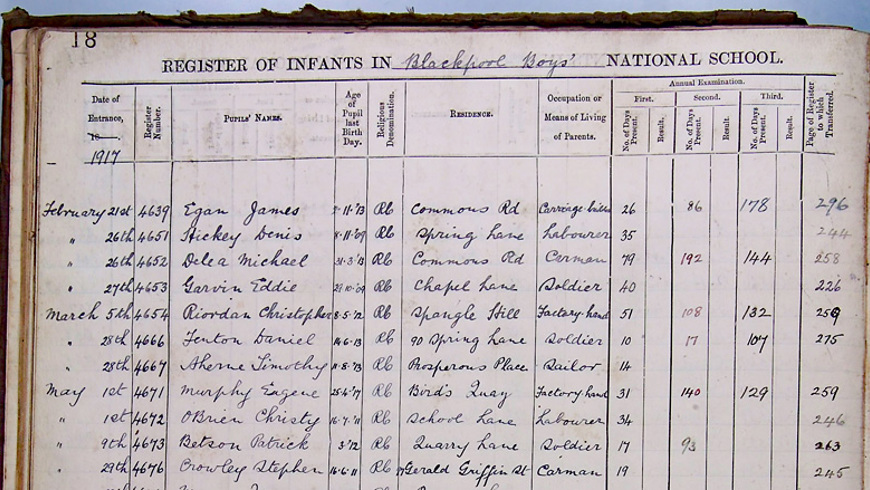 18
REGISTER OF INFANTS IN Blackpool Boys' NATIONAL SCHOOL.
Date of Entrance, 18 1917 Register Number. Pupils' Names. Age of Pupil last Birth Day. Religious Denomination. Residence. Occupation or Means of Living of Parents. Annual Examination. First. Second. Third. No. of Days Present. Result. No. of Days Present. Result. No. of Days Present. Result. Page of Register to which Transferred.
February 21st 4639 Egan James 2·11·'13 Rc Commons Rd Carriage builder 26 86 178 296
" 26th 4651 Hickey Denis 8·11·'09 Rc Spring Lane Labourer 35 244
" 26th 4652 Delea Michael 31·3·'13 Rc Commons Rd Carman 79 192 144 258
" 27th 4653 Garvin Eddie 29·10·'09 Rc Chapel Lane Soldier 40 226
March 5th 4654 Riordan Christopher 8·5·'12 Rc Spangle Hill Factory hand 51 108 132 259
" 28th 4666 Fenton Daniel 14·6·13 Rc 90 Spring Lane Soldier 10 17 107 275
" 28th 4667 Aherne Timothy 11·8·'13 Rc Prosperous Place Sailor 14
May 1st 4671 Murphy Eugene 25·4· Rc Bird's Quay Factory hand 31 140 129 259
" 1st 4672 OBrien Christy 16·7·'11 Rc School Lane Labourer 34 246
" 9th 4673 Betson Patrick 3/'12 Rc Quarry Lane Soldier 17 93 263
" 29th 4676 Crowley Stephen 16·6·11 Rc Gerald Griffin St Carman 19 245